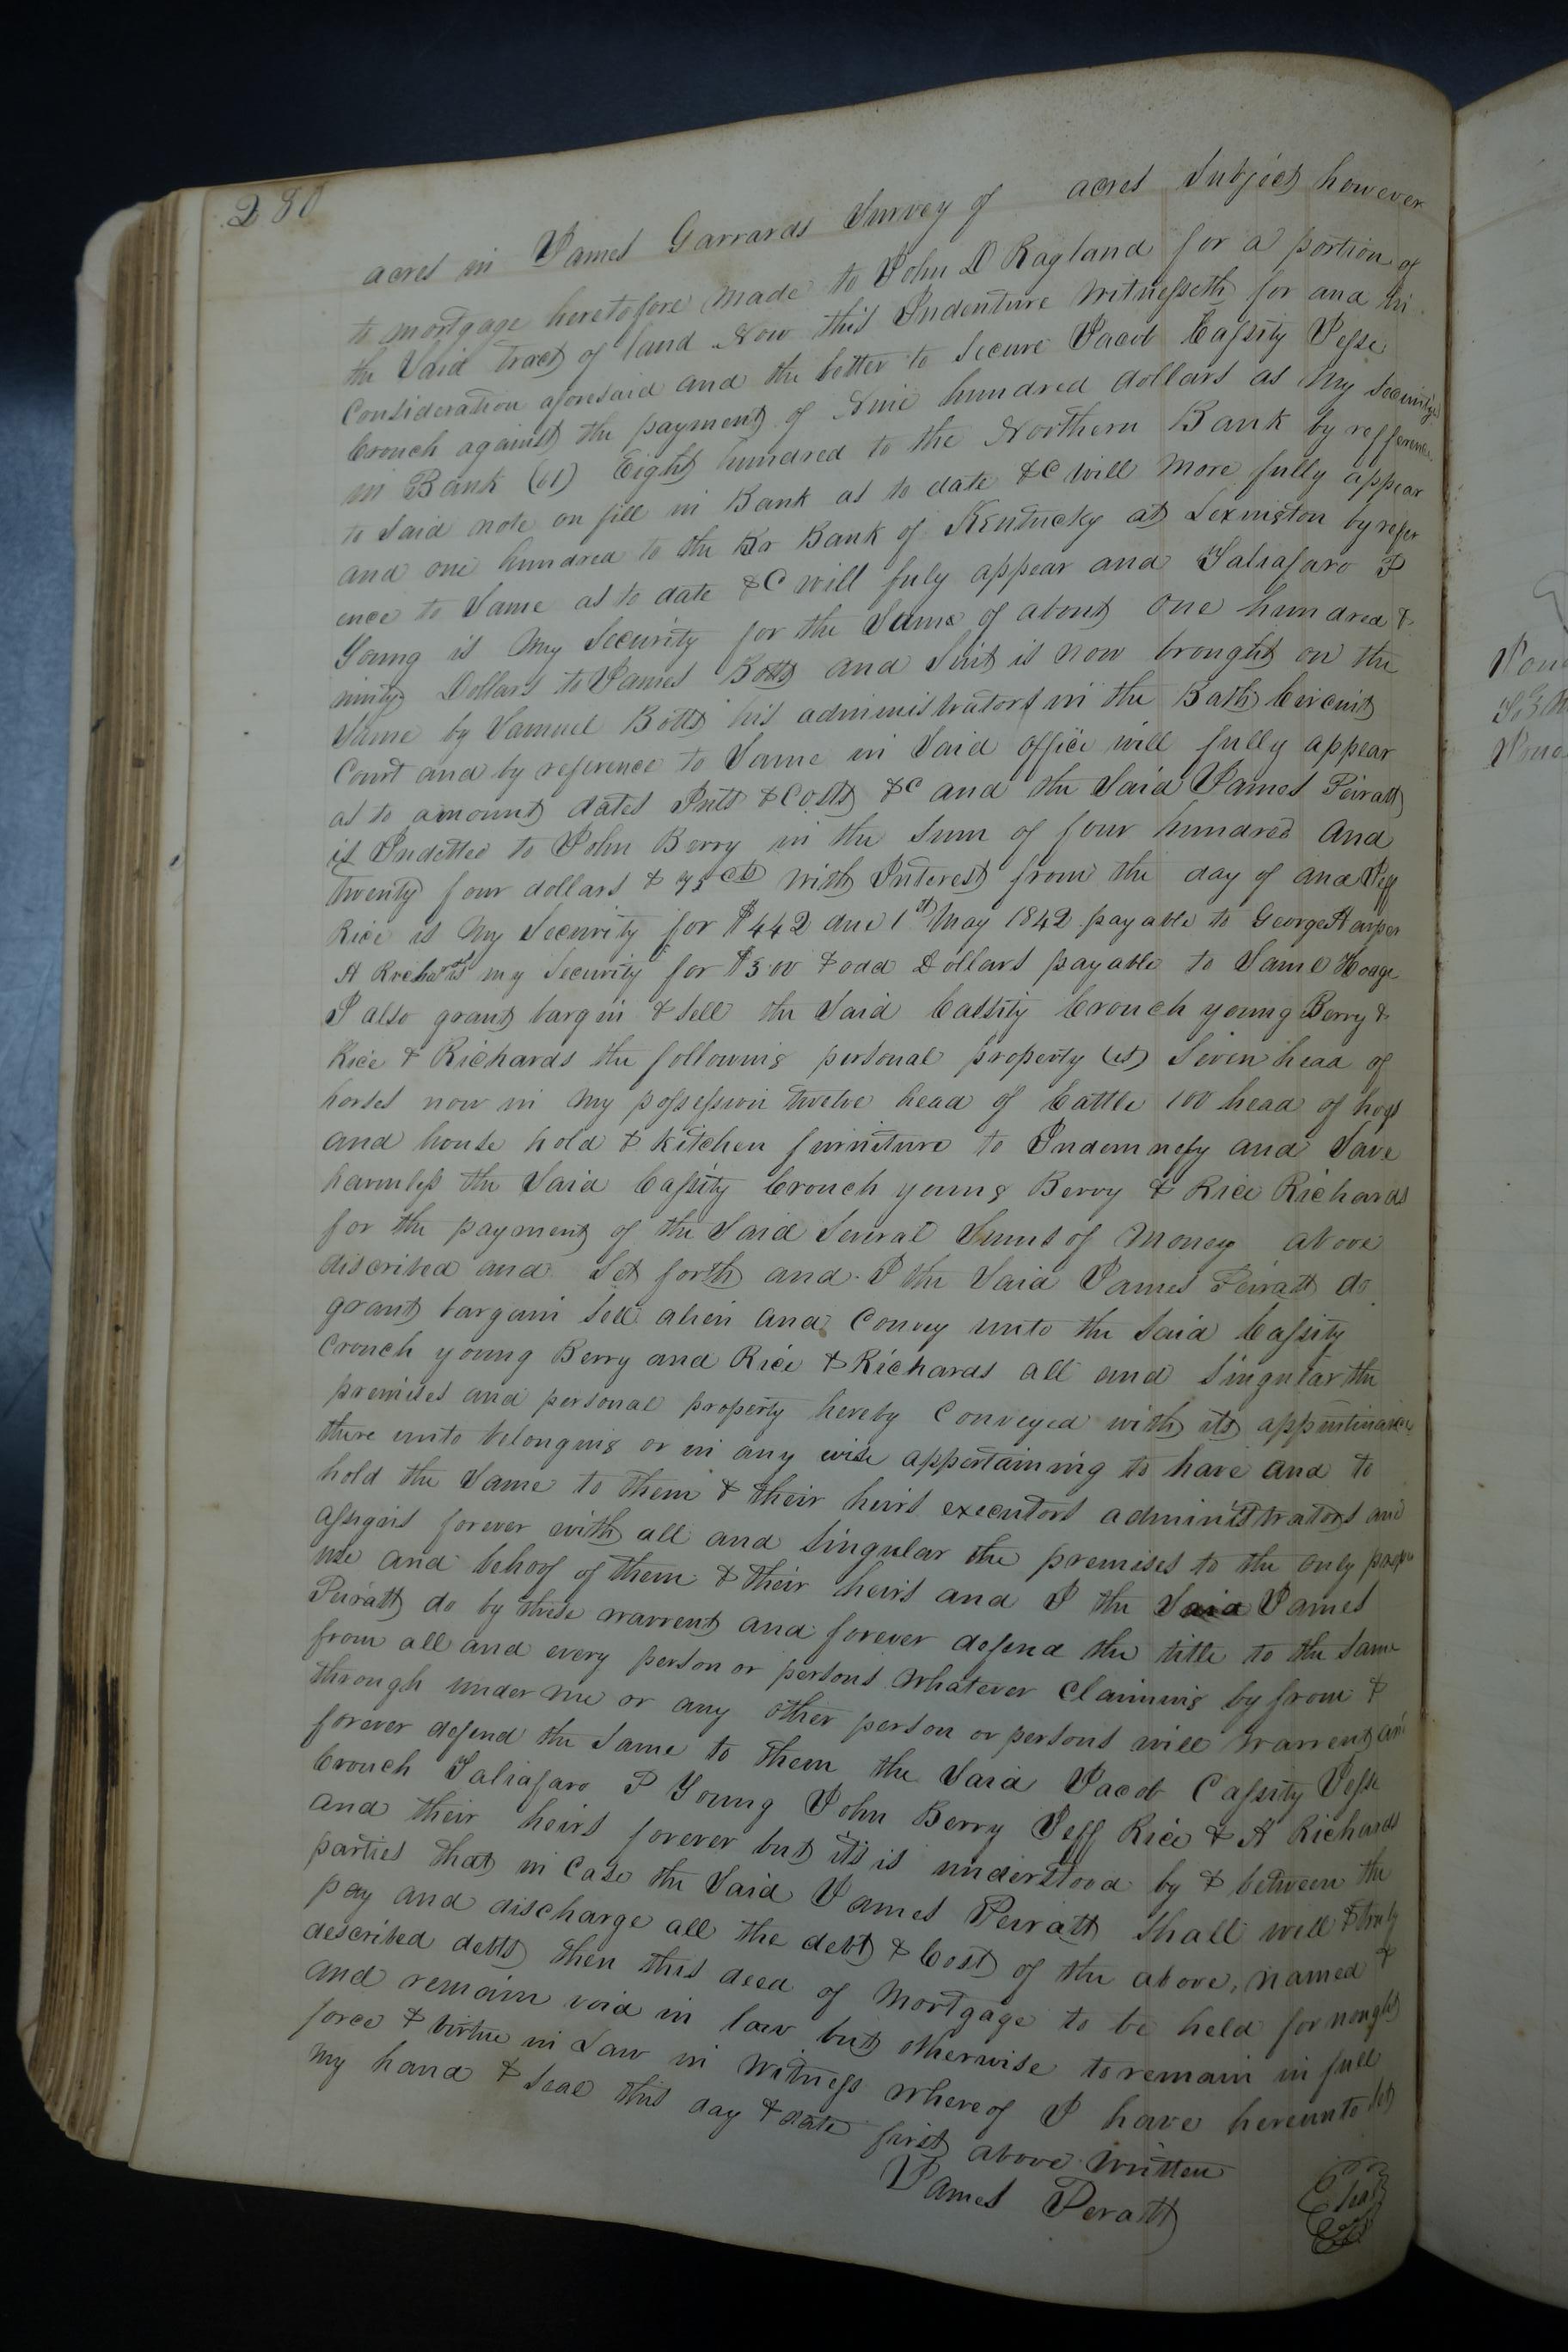 280
acres in James Garrards Survey of acres Subject however
to mortgage heretofore made to John D Ragland for a portion of
the Said tract of land Now this Indenture Witnesseth for and in
Consideration aforesaid and the better to Secure Jacob Cassity Jesse
Crouch against the payment of Nine hundred dollars as my Security
in Bank Eight hundred to the Northern Bank by refference
to Said note on fill in Bank as to date &C will more fully appear
and one hundred to the Br Bank of Kentucky at Lexington by refer
ence to Same as to date &C will fuly appear and Taliafaro P
Young is my Security for the Sume of about one hundred &
ninity Dollars to James Botts and Suit is now brought on the
Same by Samuel Botts his administrators in the Bath Circuit
Court and by reference to Same in Said office will fully appear
as to amount dates Ints & Costs &C and the Said James Peiratt
is Indetted to John Berry in the Sum of four hundred and
twenty four dollars & 75 cts with Interest from the day of and Jeff
Rice is my Security for $442 due 1st May 1842 payable to George Harper
A my Security for $300 & odd Dollars payable to Saml Hodge
I also grant bargin & Sell the Said Cassity Crouch young Berry &
Rice & Richards the following personal property Seven head of
horses now in my possession twelve head of Cattle 100 head of hogs
and house hold & kitchen furniture to Indemnefy and Save
harmless the Said Cassity Crouch young Berry & Rice Richards
for the payment of the Said Several Sums of money above
discribed and Set forth and I the Said James Peiratt do
grant bargain Sell alien and Convey unto the Said Cassity
Crouch young Berry and Rice & Richards all and Singular the
premises and personal property hereby Conveyed with its appurtinances
there unto belonging or in any wise appertaining to have and to
hold the Same to them & their heirs executors administrators and
assigns forever with all and Singular the premises to the only proper
use and behoof of them & their heirs and I the Said James
Peiratt do by these warrent and forever defend the title to the Same
from all and every person or persons whatever Claiming by from &
through under me or any other person or persons will warrent and
forever defend the Same to them the Said Jacob Cassity Jesse
Crouch Taliafaro P Young John Berry Jeff Rice & A Richards
and their heirs forever but its is understood by & between the
parties that in Case the Said James Peiratt Shall well & truly
pay and discharge all the debt & Cost of the above, named &
described debts then this deed of Mortgage to be held for nought
and remain void in law but otherwise to remain in full
force & virtue in Law in Witness whereof I have hereunto Set
my hand & Seal this day & date first above Written
James Peratt Seal